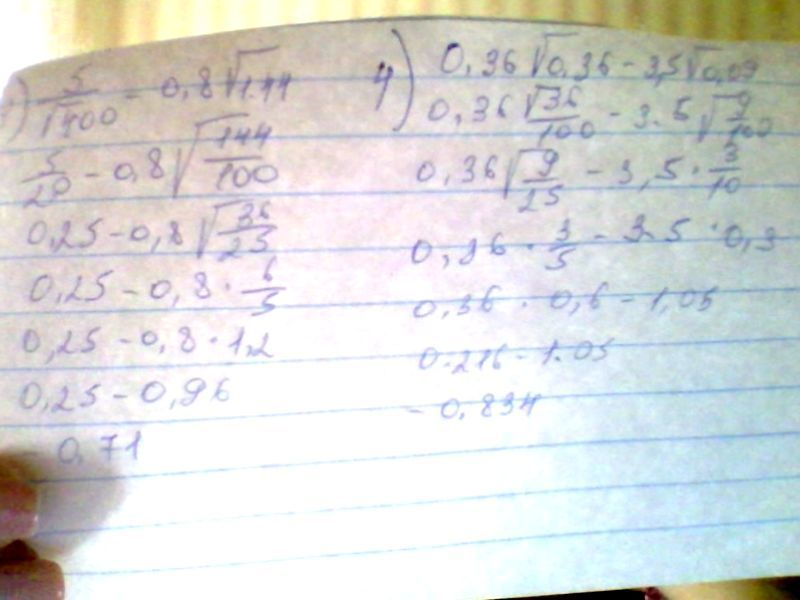 1) 5/√400 - 0,8√1.44
5/20 - 0,8√144/100
0,25 - 0,8√36/25
0,25 - 0,8 · 6/5
0,25 - 0,8 · 1,2
0,25 - 0,96
0,71
4) 0,36√0,36 - 3,5√0,09
0,36√36/100 - 3.5√9/100
0,36√9/25 - 3,5 · 3/10
0,36 · 3/5 - 3.5 · 0,3
0,36 · 0,6 - 1,05
0.216 - 1.05
- 0,834